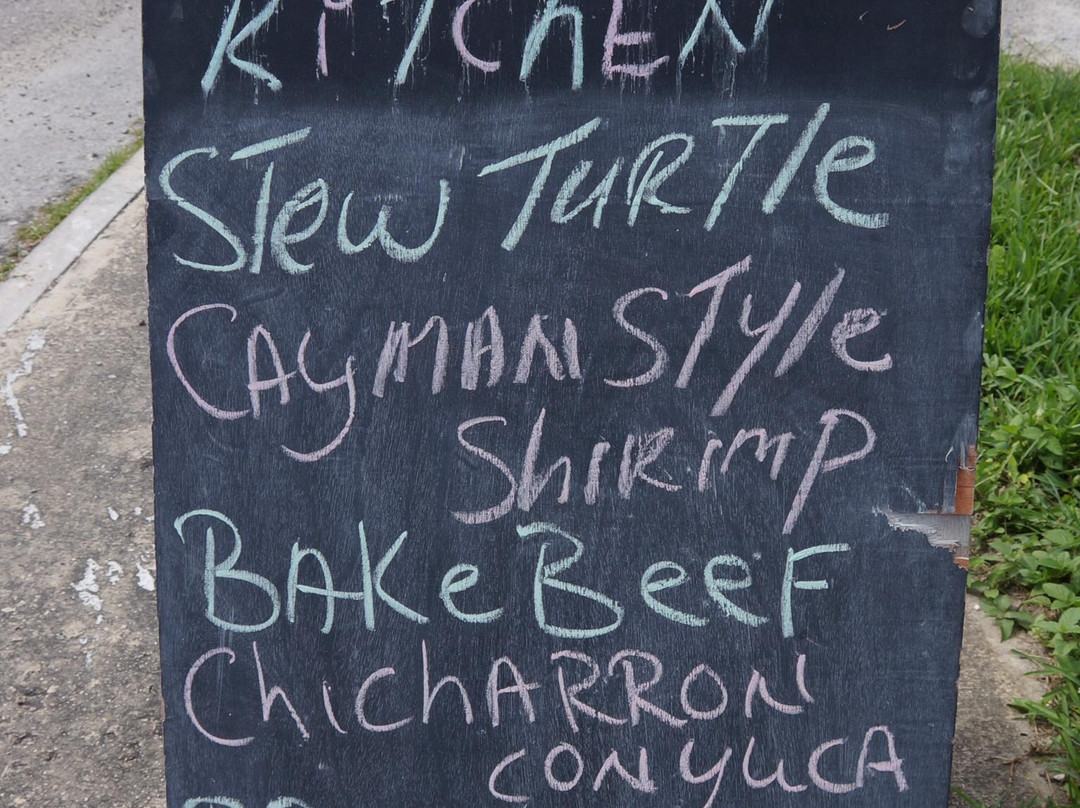 KiTChEN
STew TuRTle
CAyMAN STyle
ShRimp
BAKe BeeF
ChichARRON
CON yucA